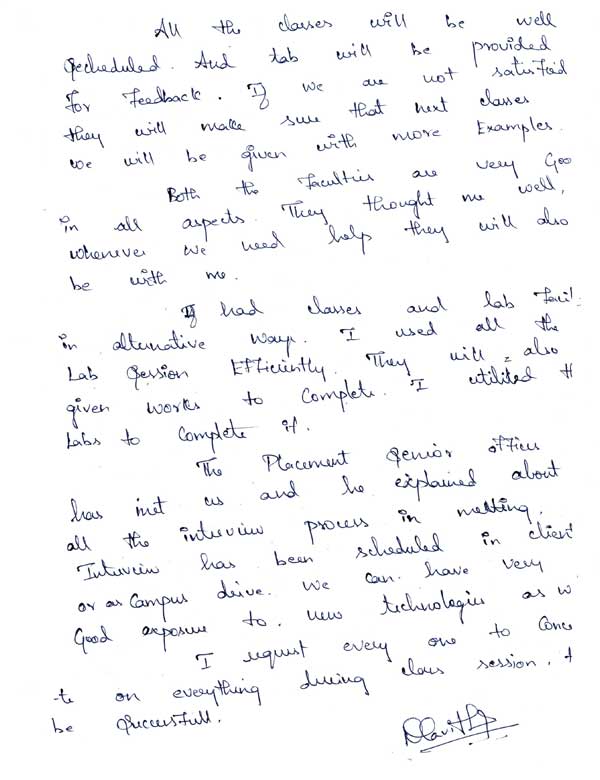 All the classes will be well
Scheduled. And tab will be provided
For Feedback. If we are not satisfied
they will make sure that next classes
we will be given with more Examples.
Both the Faculties are very Goo
in all aspects. They thought me well,
whenever we need help they will also
be with me.
I had classes and lab Facil
in alternative ways. I used all the
Lab Session Efficiently. They will also
given works to Complete. I utilited th
Labs to complete it.
The Placement Senior officer
has met us and he explained about
all the interview process in meeting.
Interview has been scheduled in client
or as Campus drive. We can have very
Good exposure to. new technologies as w
I request every one to Conce
-te on everything during class session. t
be Successfull.